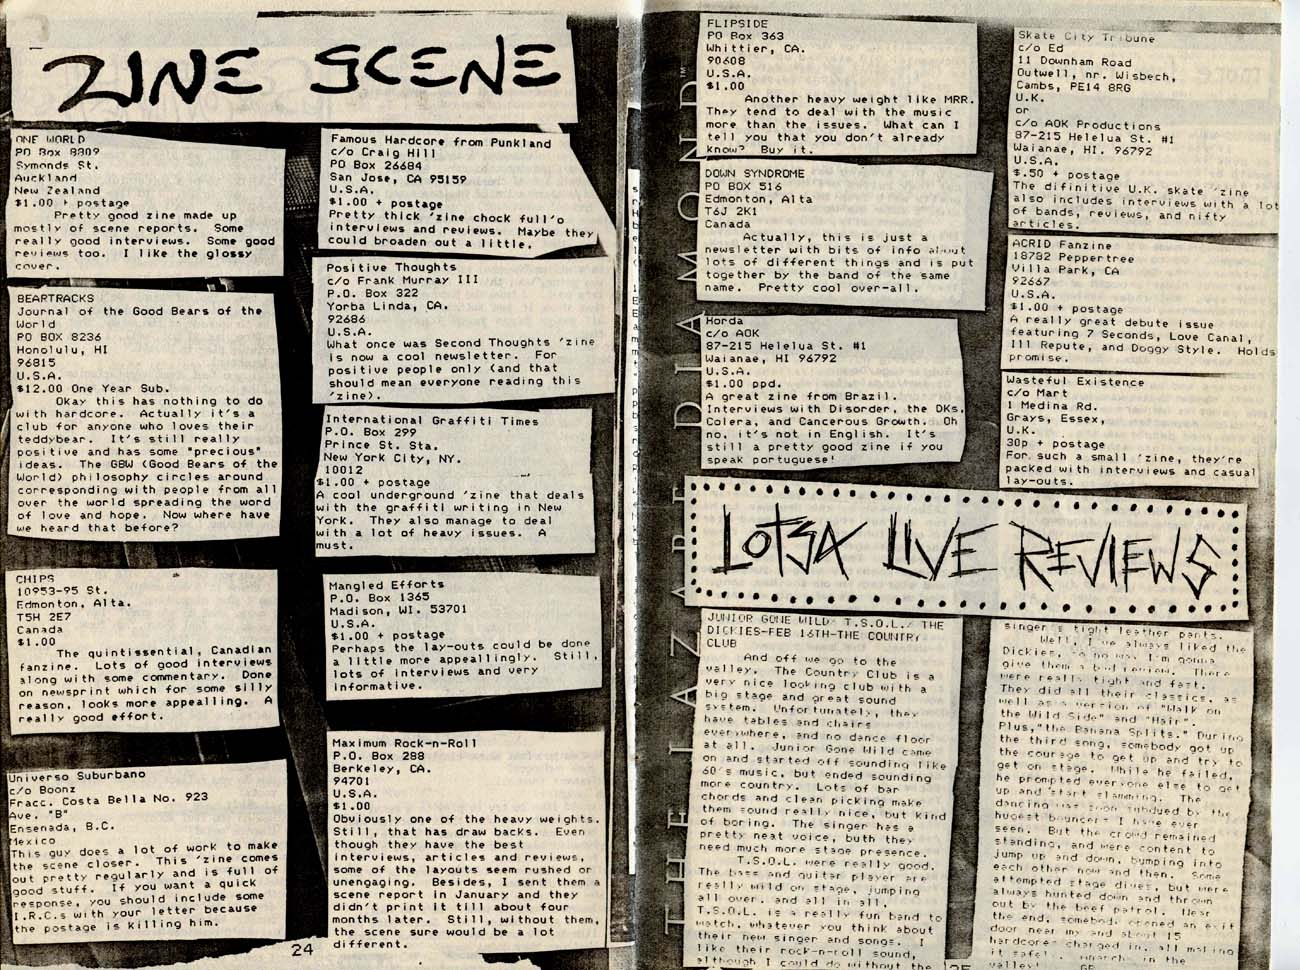 ZINE SCENE
ONE WORLD
PO Box 8809
Symonds St.
Auckland
New Zealand
$1.00 + postage
Pretty good zine made up
mostly of scene reports. Some
really good interviews. Some good
reviews too. I like the glossy
cover.
BEARTRACKS
Journal of the Good Bears of the
World
PO BOX 8236
Honolulu, HI
96815
U.S.A.
$12.00 One Year Sub.
Okay this has nothing to do
with hardcore. Actually it's a
club for anyone who loves their
teddybear. It's still really
positive and has some "precious"
ideas. The GBW (Good Bears of the
World) philosophy circles around
corresponding with people from all
over the world spreading the word
of love and hope. Now where have
we heard that before?
CHIPS
10953-95 St.
Edmonton, Alta.
T5H 2E7
Canada
$1.00
The quintissential, Canadian
fanzine. Lots of good interviews
along with some commentary. Done
on newsprint which for some silly
reason, looks more appealling. A
really good effort.
Universo Suburbano
c/o Boonz
Fracc. Costa Bella No. 923
Ave. "B"
Ensenada, B.C.
Mexico
This guy does a lot of work to make
the scene closer. This 'zine comes
out pretty regularly and is full of
good stuff. If you want a quick
response, you should include some
I.R.C.s with your letter because
the postage is killing him.
Famous Hardcore from Punkland
c/o Craig Hill
PO Box 26684
San Jose, CA 95159
U.S.A.
$1.00 + postage
Pretty thick 'zine chock full'o
interviews and reviews. Maybe they
could broaden out a little.
Positive Thoughts
c/o Frank Murray III
P.O. Box 322
Yorba Linda, CA.
92686
U.S.A.
What once was Second Thoughts 'zine
is now a cool newsletter. For
positive people only (and that
should mean everyone reading this
'zine).
International Graffiti Times
P.O. Box 299
Prince St. Sta.
New York City, NY.
10012
$1.00 + postage
A cool underground 'zine that deals
with the graffiti writing in New
York. They also manage to deal
with a lot of heavy issues. A
must.
Mangled Efforts
P.O. Box 1365
Madison, WI. 53701
U.S.A.
$1.00 + postage
Perhaps the lay-outs could be done
a little more appeallingly. Still,
lots of interviews and very
informative.
Maximum Rock-n-Roll
P.O. Box 288
Berkeley, CA.
94701
U.S.A.
$1.00
Obviously one of the heavy weights.
Still, that has draw backs. Even
though they have the best
interviews, articles and reviews,
some of the layouts seem rushed or
unengaging. Besides, I sent them a
scene report in January and they
didn't print it till about four
months later. Still, without them,
the scene sure would be a lot
different.
24
FLIPSIDE
PO Box 363
Whittier, CA.
90608
U.S.A.
$1.00
Another heavy weight like MRR.
They tend to deal with the music
more than the issues. What can I
tell you that you don't already
know? Buy it.
DOWN SYNDROME
PO BOX 516
Edmonton, Alta
T6J 2K1
Canada
Actually, this is just a
newsletter with bits of info about
lots of different things and is put
together by the band of the same
name. Pretty cool over-all.
Horda
c/o AOK
87-215 Helelua St. #1
Waianae, HI 96792
U.S.A.
$1.00 ppd.
A great zine from Brazil.
Interviews with Disorder, the DKs,
Colera, and Cancerous Growth. Oh
no, it's not in English. It's
still a pretty good zine if you
speak portuguese!
Skate City Tribune
c/o Ed
11 Downham Road
Outwell, nr. Wisbech,
Cambs, PE14 8RG
U.K.
or
c/o AOK Productions
87-215 Helelua St. #1
Waianae, HI. 96792
U.S.A.
$.50 + postage
The difinitive U.K. skate 'zine
also includes interviews with a lot
of bands, reviews, and nifty
articles.
ACRID Fanzine
18782 Peppertree
Villa Park, CA
92667
U.S.A.
$1.00 + postage
A really great debute issue
featuring 7 Seconds, Love Canal,
Ill Repute, and Doggy Style. Holds
promise.
Wasteful Existence
c/o Mart
1 Medina Rd.
Grays, Essex,
U.K.
30p + postage
For such a small 'zine, they're
packed with interviews and casual
lay-outs.
LOTSA LIVE REVIEWS
JUNIOR GONE WILD/ T.S.O.L./ THE
DICKIES-FEB 16TH-THE COUNTRY
CLUB
And off we go to the
valley. The Country Club is a
very nice looking club with a
big stage and great sound
system. Unfortunately, they
have tables and chairs
everywhere, and no dance floor
at all. Junior Gone Wild came
on and started off sounding like
60's music, but ended sounding
more country. Lots of bar
chords and clean picking make
them sound really nice, but kind
of boring. The singer has a
pretty neat voice, buth they
need much more stage presence.
T.S.O.L. were really good.
The bass and guitar player are
really wild on stage, jumping
all over, and all in all,
T.S.O.L. is a really fun band to
watch, whatever you think about
their new singer and songs. I
like their rock-n-roll sound,
although I could do without the
singer's tight leather pants.
Well, I've always liked the
Dickies, so no way I'm gonna
give them a bad review. There
were really tight and fast.
They did all their classics, as
well as a version of "Walk on
the Wild Side" and "Hair".
Plus,"the Banana Splits." During
the third song, somebody got up
the courage to get up and try to
get on stage. While he failed,
he prompted everyone else to get
up and start slamming. The
dancing was soon subdued by the
hugest bouncers I have ever
seen. But the crowd remained
standing, and were content to
jump up and down, bumping into
each other now and then. Some
attempted stage dives, but were
always hunted down and thrown
out by the beef patrol. Near
the end, somebody opened an exit
door near my and about 15
hardcores charged in, all making
it safely. in the
valley!
THE LAZART DIAMOND™